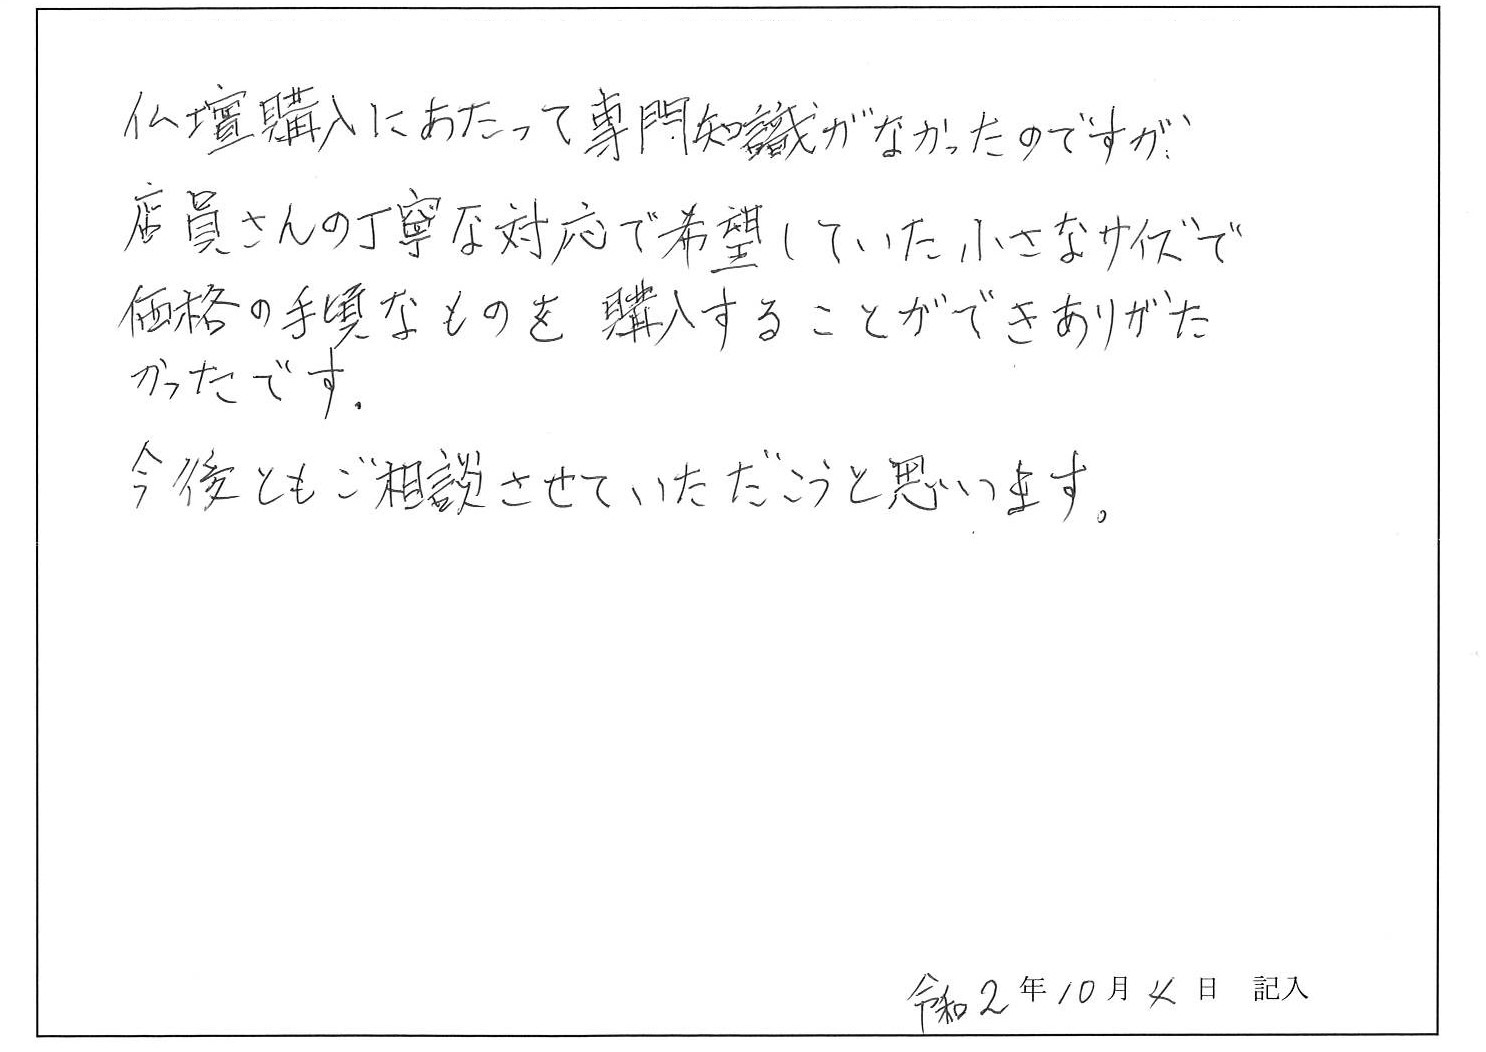 仏壇購入にあたって専門知識がなかったのですが、
店員さんの丁寧な対応で希望していた小さなサイズで
価格の手頃なものを購入することができありがた
かったです。
今後ともご相談させていただこうと思います。
令和2年10月4日 記入